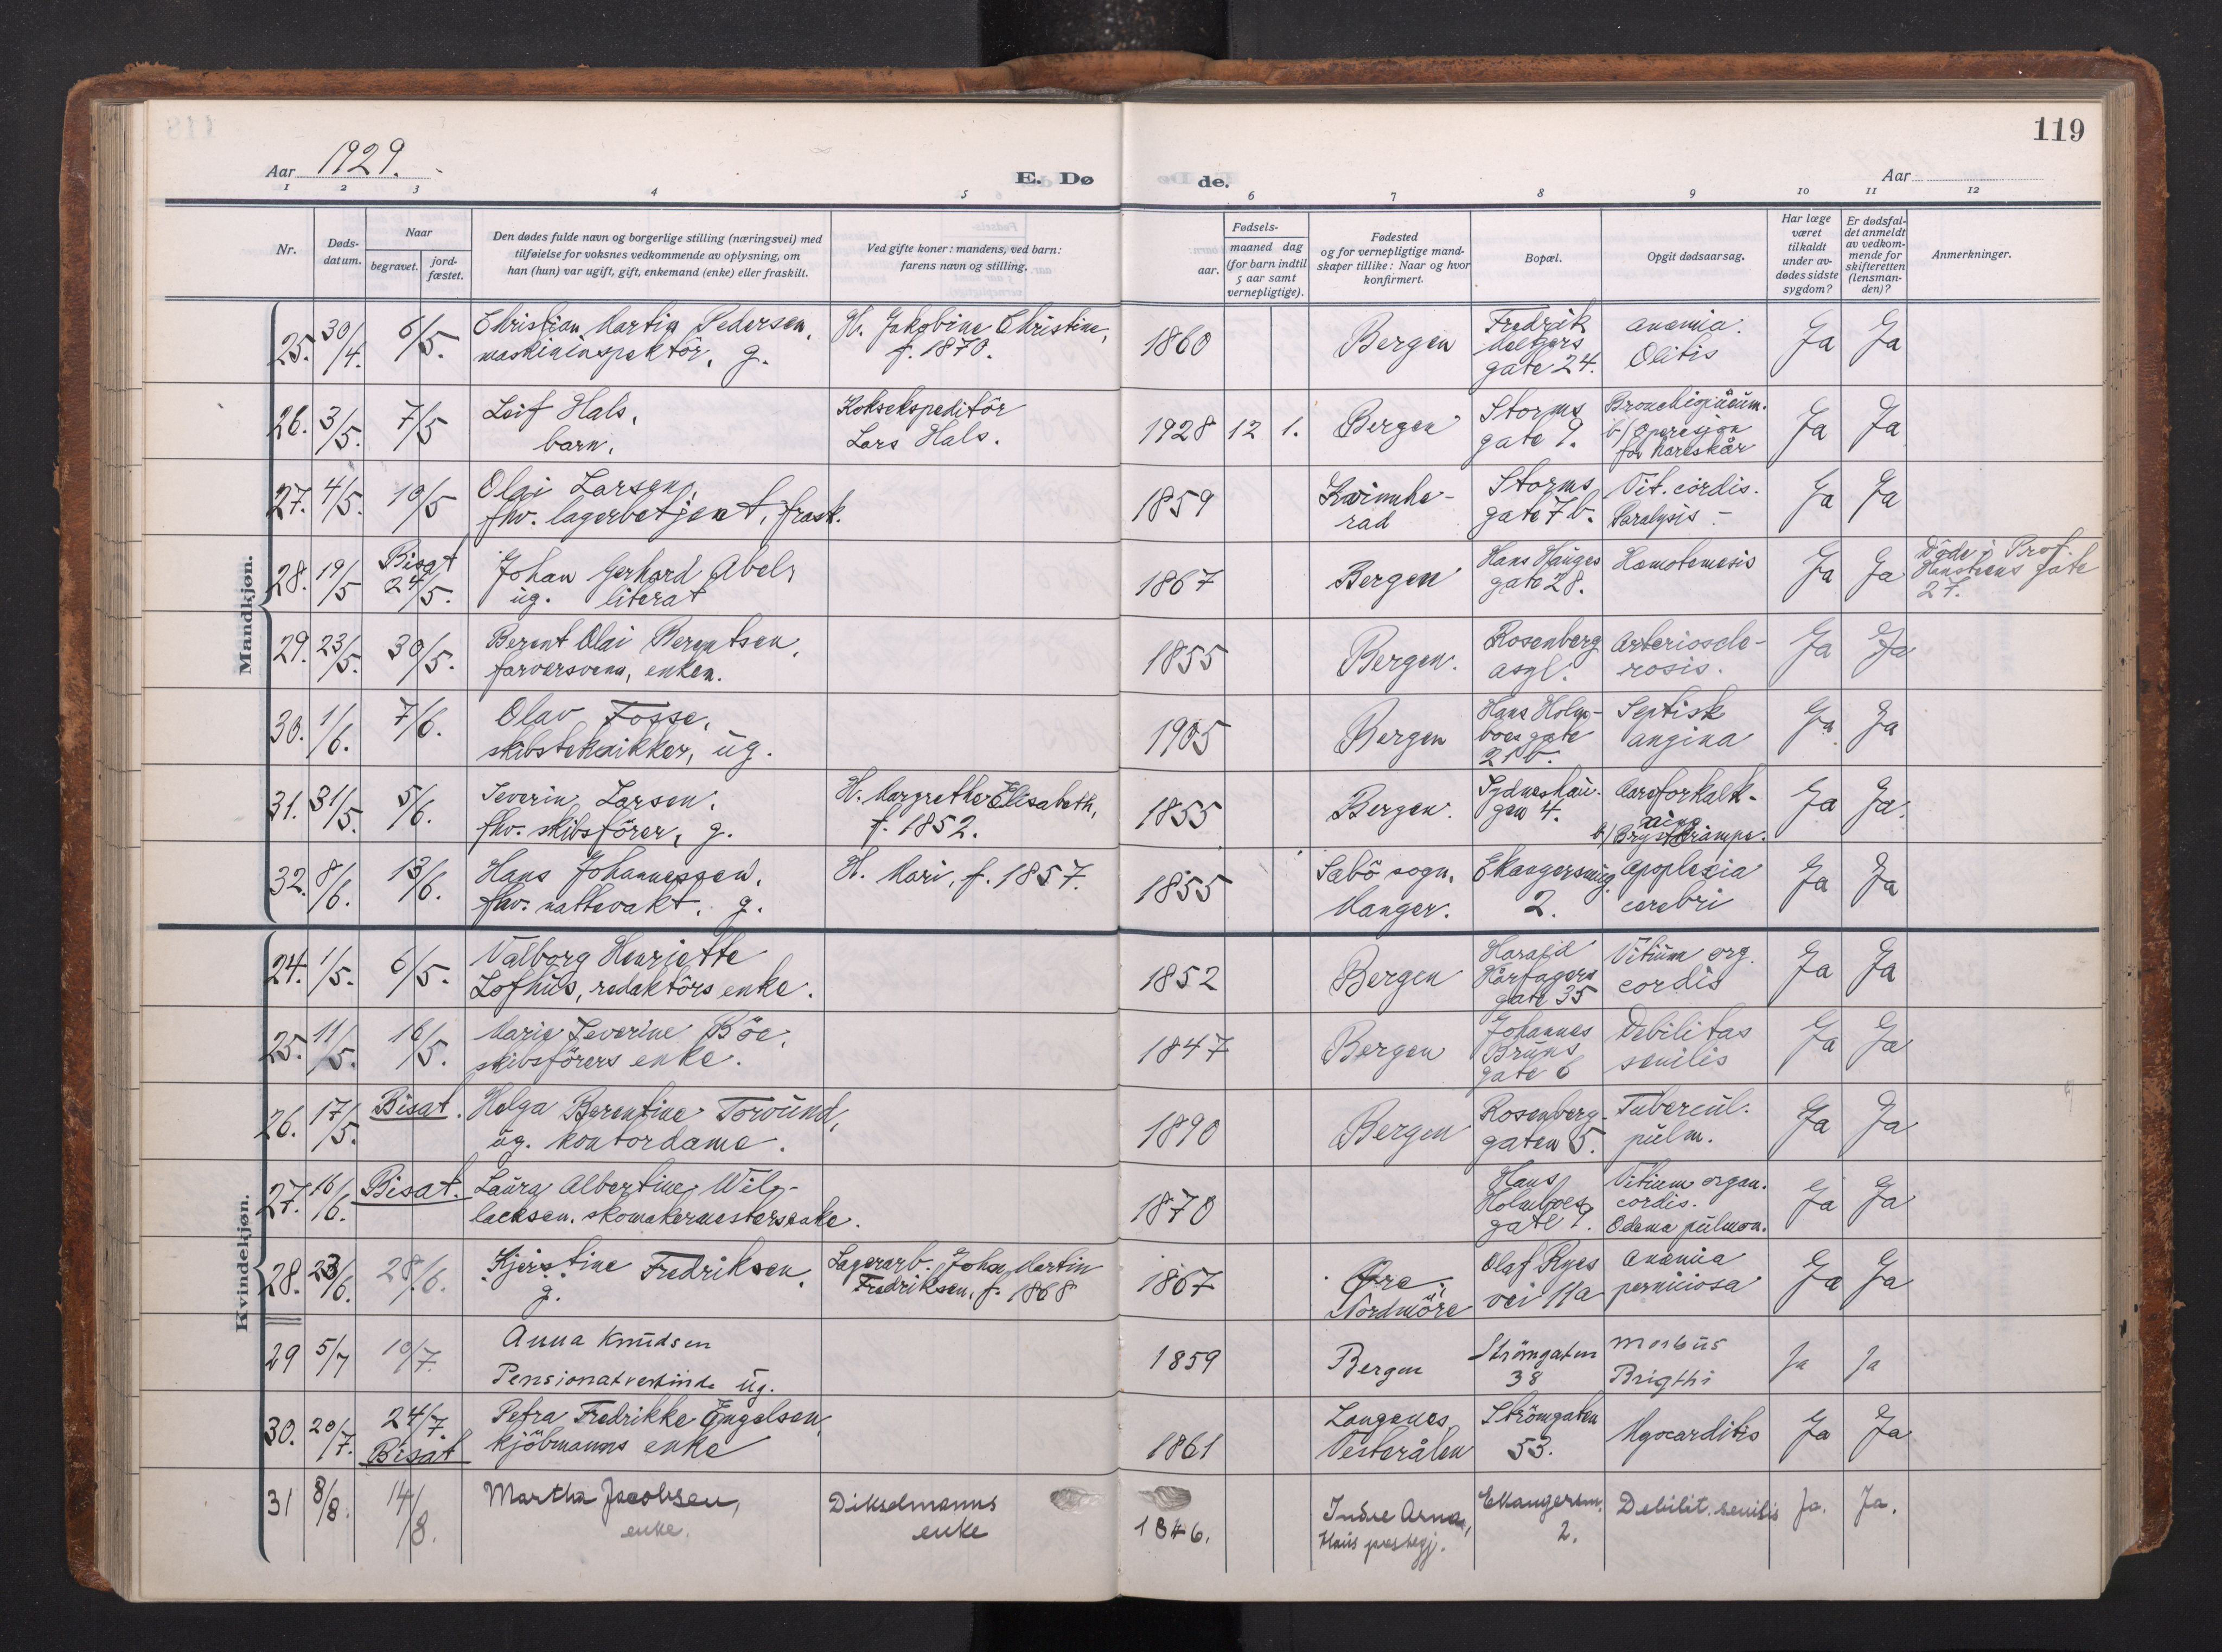 119
Aar 1929.
E. Dø
de.
Aar
1 2 3 4 5 6 7 8 9 10 11 12
Nr.
Døds-
datum.
Naar
begravet.
jord-
fæstet.
Den dødes fulde navn og borgerlige stilling (næringsvei) med
tilføielse for voksnes vedkommende av oplysning, om
han (hun) var ugift, gift, enkemand (enke) eller fraskilt.
Ved gifte koner: mandens, ved barn:
farens navn og stilling.
Fødsels-
aar.
maaned dag
(for barn indtil
5 aar samt
vernepligtige).
Fødested
og for vernepligtige mand-
skaper tillike: Naar og hvor
konfirmert.
Bopæl.
Opgit dødsaarsag.
Har læge
været
tilkaldt
under av-
dødes sidste
sygdom?
Er dødsfal-
det anmeldt
av vedkom-
mende for
skifteretten
(lensman-
den)?
Anmerkninger.
Mandkjøn.
25. 30/4. 6/5. Christian Martin Pedersen, H. Jakobine Christine, 1860 Bergen Fredrik anæmia. Ja Ja
maskininspektör, g. f. 1870. Meltzers Colitis
gate 24.
26. 3/5. 7/5 Leif Hals, Koksekspeditör 1928 12 1. Bergen Storms Ja Ja
barn. Lars Hals. gate 9. b/ Operasjon
for hareskår
27. 4/5. 10/5 Olai Larsen, 1859 Kvinnhe- Storms Vit. cordis. Ja Ja
fhv. lagerbetjent, frask. rad gate 7b. Paralysis -
28. 19/5 Bisat 24/5. Johan Gerhard Abels 1867 Bergen Hans Hauges Hæmotemesis Ja Ja Döde i Prof.
ug. literat gate 28. Hansteens gate
27.
29. 23/5. 30/5. Berent Olai Berentsen, 1855 Bergen. Rosenberg Arterioscle- Ja Ja
farversvenn, enkem. asyl. rosis.
30. 1/6. 7/6. Olav Fosse, 1905 Bergen Hans Holm- Septisk Ja Ja
skibstekniker, ug. boes gate angina
21b.
31. 31/5. 5/6. Severin Larsen, H. Margrethe Elisabeth, 1855 Bergen. Sydneshau- Aareforkalk- Ja Ja.
fhv. skibsförer, g. f. 1852. gen 4. ning
b/ Brystkrampe.
32. 8/6. 13/6. Hans Johannessen, H. Mari, f. 1857. 1855 Sæbö sogn, Ekangersmug Apoplexia Ja Ja
fhv. nattevakt, g. Manger. 2. cerebri
Kvindekjøn.
24. 1/5. 6/5. Valborg Henriette 1852 Bergen Harald Vitium org. Ja Ja
Lofhus, redaktörs enke. Hårfagers cordis
gate 35
25. 11/5. 16/5. Marie Severine Böe, 1847 Bergen Johannes Debilitas Ja Ja
skibsförers enke. Bruns senilis
gate 6
26. 17/5. Bisat. Helga Berentine Torvund, 1890 Bergen Rosenberg- Tubercul. Ja Ja
ug. kontordame. gaten 5. pulm.
27. 16/6. Bisat. Laura Albertine Wil- 1870 Hans Vitium organ. Ja Ja
lacksen, skomakermestersenke. Holmboes cordis.
gate 9. Ödema pulmon.
28. 23/6. 28/6. Kjerstine Fredriksen, Lagerarb. Johan Martin 1867 Øre, Olaf Ryes Anæmia Ja Ja
g. Fredriksen, f. 1868 Nordmöre vei 11a perniciosa
29 5/7 10/7. Anna Knudsen 1859 Bergen Strömgaten Morbus Ja Ja
Pensionatvertinde ug. 38 Brigthi
30. 20/7. 24/7. Petra Fredrikke Engelsen, 1861 Langenes Strömgaten Myocarditis Ja Ja
Bisat kjöbmanns enke Vesterålen 53.
31 8/8. 14/8. Martha Jacobsen, Dikselmanns 1846. Indre Arna, Ekangersm. Debilit. senilis Ja. Ja.
enke. enke Haus prestegj. 2.